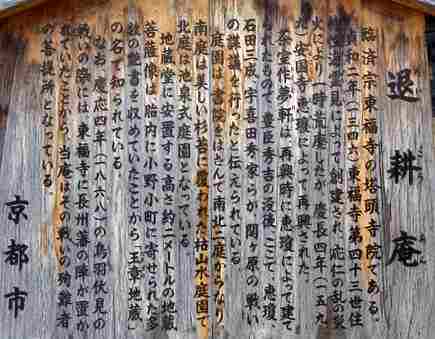 退耕庵
たいこうあん
臨済宗東福寺の塔頭寺院である。
貞和二年(一三四六)東福寺第四十三世住
持性海霊見によって創建され、応仁の乱の災
火により一時荒廃したが、慶長四年(一五九
九)安国寺恵瓊によって再興された。
茶室作夢軒は、再興時に恵瓊によって建て
られたもので、豊臣秀吉の没後、ここで、恵瓊、
石田三成、宇喜田秀家らが、関ヶ原の戦い
の謀議を行ったと伝えられている。
庭園は、書院をはさんで南北二庭からなり、
南庭は美しい杉苔に覆われた枯山水庭園で、
北庭は池泉式庭園となっている。
地蔵堂に安置する高さ約二メートルの地蔵
菩薩像は、胎内に小野小町に寄せられた多
数の艶書を収めていたことから「玉章地蔵」
の名で知られている。
なお、慶応四年(一八六八)の鳥羽伏見の
戦いの際には、東福寺に長州藩の陣が置か
れていたことから、当庵はその戦いの殉難者
の菩提所となっている。
京都市